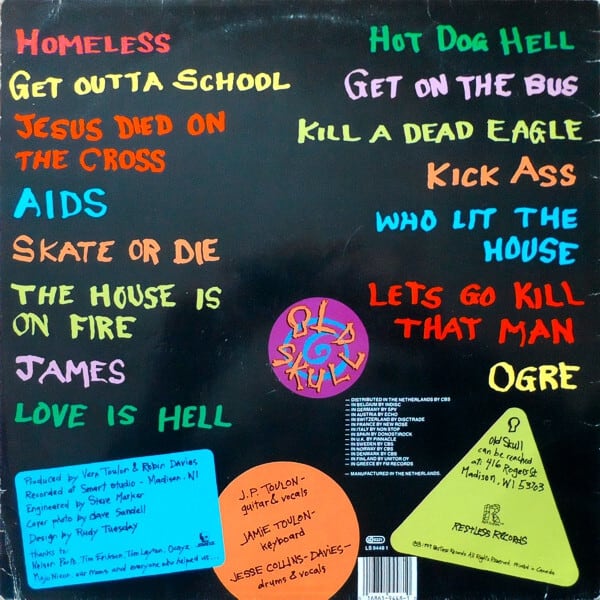 HOMELESS
GET OUTTA SCHOOL
JESUS DIED ON
THE CROSS
AIDS
SKATE OR DIE
THE HOUSE IS
ON FIRE
JAMES
LOVE IS HELL
HOT DOG HELL
GET ON THE BUS
KILL A DEAD EAGLE
KICK ASS
WHO LIT THE
HOUSE
LETS GO KILL
THAT MAN
OGRE
OLD
SKULL
— DISTRIBUTED IN THE NETHERLANDS BY CBS
— IN BELGIUM BY INDISC
— IN GERMANY BY SPV
— IN AUSTRIA BY ECHO
— IN SWITZERLAND BY DISCTRADE
— IN FRANCE BY NEW ROSE
— IN ITALY BY NON STOP
— IN SPAIN BY DONOSTIROCK
— IN U.K. BY PINNACLE
— IN SWEDEN BY CBS
— IN NORWAY BY CBS
— IN DENMARK BY CBS
— IN FINLAND BY UNITOR OY
— IN GREECE BY FM RECORDS
— MANUFACTURED IN THE NETHERLANDS.
Produced by Vern Toulon & Robin Davies
Recorded at Smart Studio - Madison, WI
Engineered by Steve Marker
Cover photo by Dave Sandell
Design by Rudy Tuesday
thanks to:
Nelson Tim Erikson, Tim
Mojo Nixon, our moms and everyone who helped us...
J.P. TOULON-
guitar & vocals
JAMIE TOULON-
keyboard
JESSE COLLINS-DAVIES-
drums & vocals
LS 9448 1
Old Skull
can be reached
at: 416 Rogers St
Madison, WI 53703
R
RESTLESS RECORDS
Restless Records All Rights Reserved. Printed in Canada